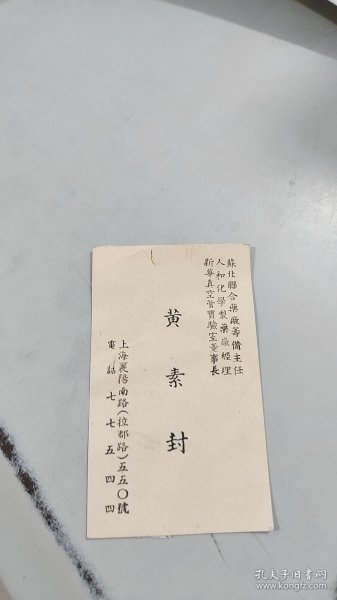 蘇北聯合藥廠籌備主任
人和化學製藥廠經理
新華真空管實驗室董事長
黄素封
上海襄陽南路(拉都路)五五〇號
電話 七七五四四
孔夫子旧书网
www.kongfz.com